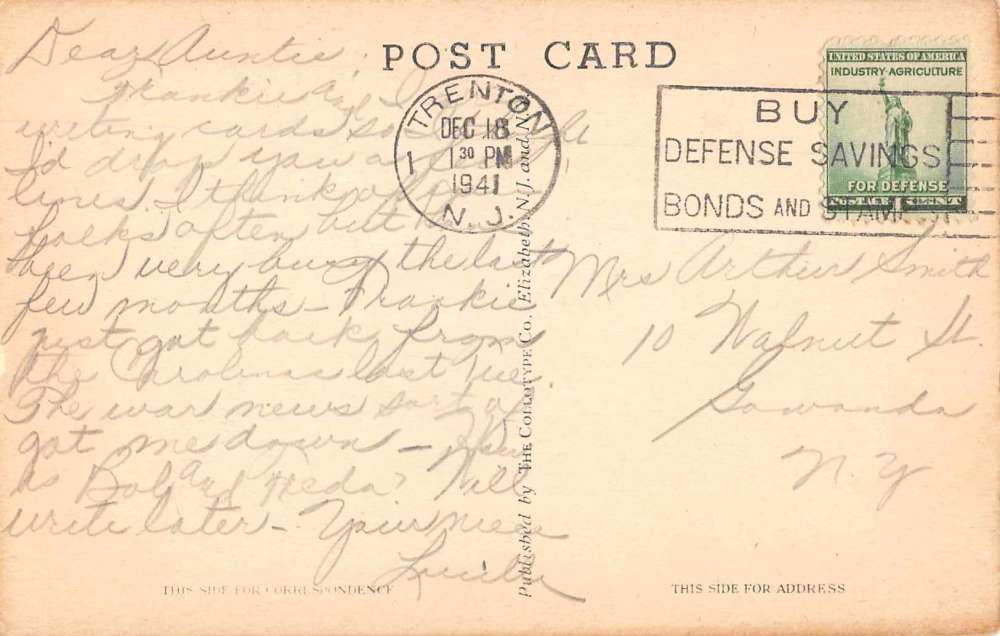 POST CARD
Dear Auntie,
Frankie and I
writing cards so
I'd drop you a
lines. I think of
folks often but
been very busy the last
few months – Frankie
just got back from
the Carolinas last Tue.
The war news sort of
got me down – How
is Bob and Neda? Will
write later – Your niece
Lucille
TRENTON
DEC 18
1 30 PM
1941
1
N.J.
BUY
DEFENSE SAVINGS
BONDS AND STAMPS
UNITED STATES OF AMERICA
INDUSTRY·AGRICULTURE
FOR DEFENSE
Mrs Arthur Smith
10 Walnut St.
Gowanda
N.Y
Published by THE COLLOTYPE CO., Elizabeth, N.J. and N.
THIS SIDE FOR CORRESPONDENCE
THIS SIDE FOR ADDRESS